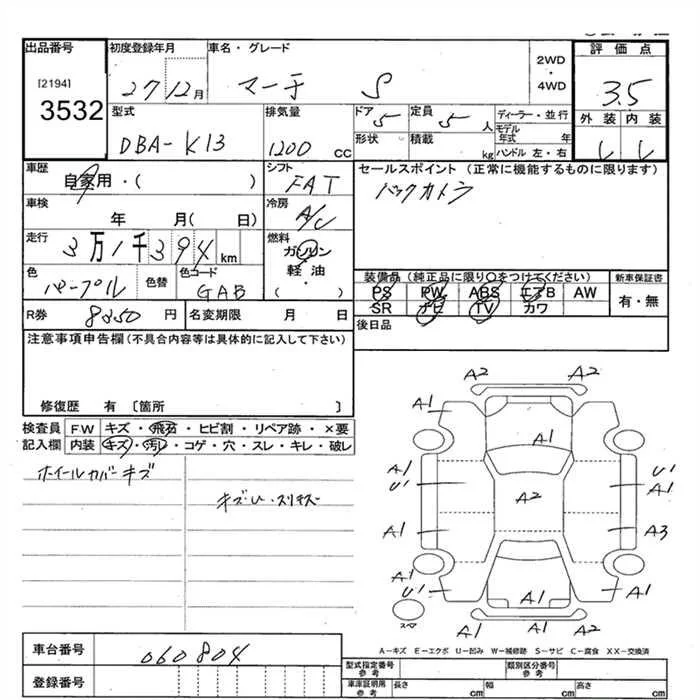 出品番号
[2194]
3532
初度登録年月
27 12月
車名・グレード
マーチ S
2WD
・
4WD
評価点
3.5
型式
DBA-K13
排気量
1200 CC
ドア
5
定員
5 人
形状
積載
kg
ディーラー・並行
モデル
年式 年
ハンドル 左・右
外装 内装
車歴
自家用・( )
シフト
FAT
セールスポイント (正常に機能するものに限ります)
バックカメラ
車検
年 月( 日)
冷房
A/C
走行
3万1千394km
燃料
ガソリン
軽油
( )
色
パープル
色替
色コード
GAB
装備品(純正品に限り○をつけてください)
新車保証書
PS PW ABS エアB AW
有・無
SR ナビ TV カワ
R券
8250円
名変期限 月 日
後日品
注意事項申告欄(不具合内容等は具体的に記入して下さい)
修復歴 有〔箇所 〕
検査員
記入欄
FW キズ・飛石・ヒビ割・リペア跡・×要
内装 キズ・汚レ・コゲ・穴・スレ・キレ・破レ
ホイールカバーキズ
A2 A2
A1 A1
A1
A1
U1
A2
U1
A1
A1 A3
A1
U1
A1
A1
A1 A2
A-キズ E-エクボ U-凹み W-補修跡 S-サビ C-腐食 XX-交換済
車台番号
060804
登録番号
型式指定番号
参考
類別区分番号
参考
車庫証明用
参考
長さ cm 幅 cm 高さ cm